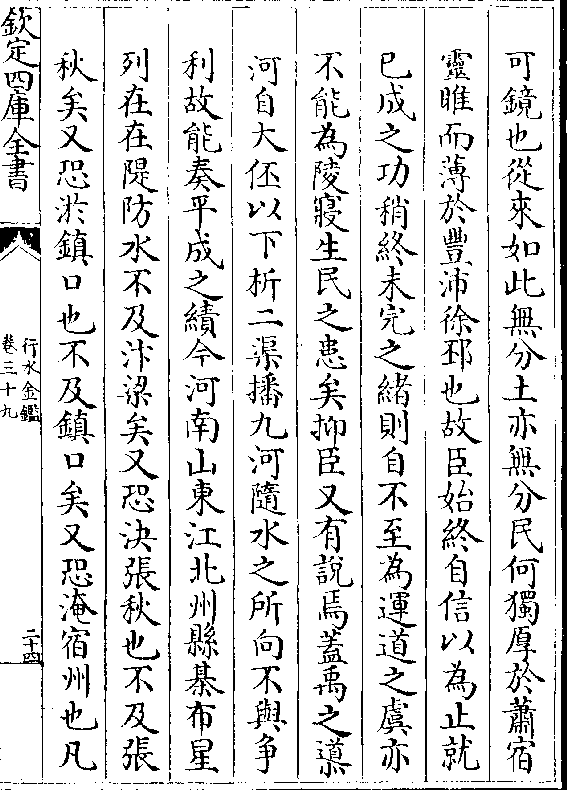 可鏡也從來如此無分土亦無分民何獨厚於蕭宿
靈睢而薄於豐沛徐邳也故臣始終自信以為止就
已成之功稍終未完之緒則自不至為運道之虞亦
不能為陵寢生民之患矣抑臣又有說焉蓋禹之導
河自大伾以下析二渠播九河隨水之所向不與爭
利故能奏平成之績今河南山東江北州縣棊布星
列在在隄防水不及汴梁矣又恐決張秋也不及張
秋矣又恐淤鎮口也不及鎮口矣又恐淹宿州也凡
欽定四庫全書
行水金鑑
卷三十九
二十四